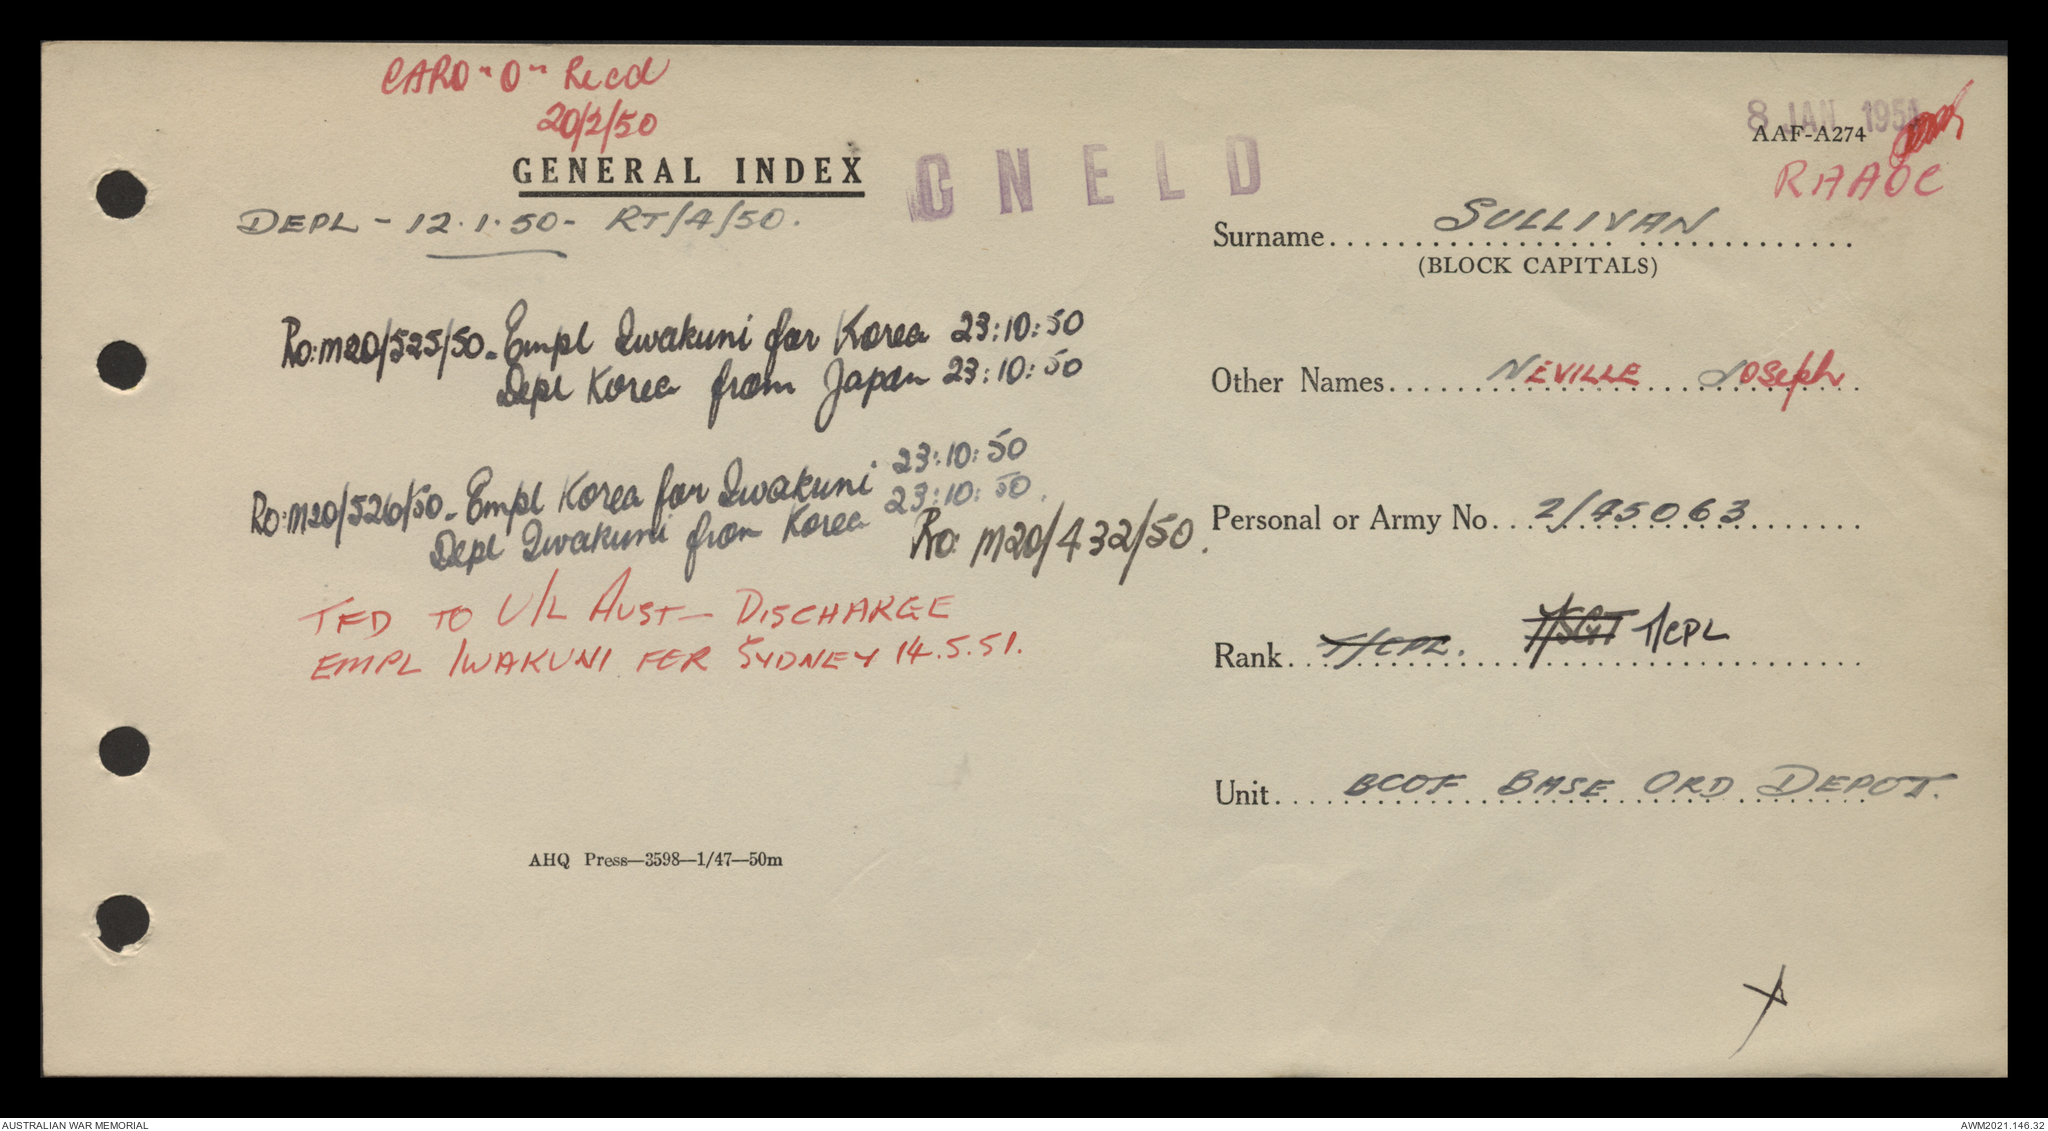 CARO "O" Recd
20/2/50
GENERAL INDEX
DEPL - 12.1.50 - RT/4/50.
Ro:m20/525/50 - Empl Iwakuni for Korea 23:10:50
Depl Korea from Japan 23:10:50
Ro:m20/526/50 - Empl Korea for Iwakuni 23:10:50
Depl Iwakuni from Korea 23:10:50.
Ro: m20/432/50.
TFD TO U/L AUST - DISCHARGE
EMPL IWAKUNI FER SYDNEY 14.5.51.
AHQ Press—3598—1/47—50m
GNELD
8 JAN 1951
AAF-A274
RAAOC
Surname SULLIVAN
(BLOCK CAPITALS)
Other Names NEVILLE JOSEPH
Personal or Army No. 2/45063
Rank T/CPL. T/SGT T/CPL
Unit BCOF BASE ORD DEPOT.
AUSTRALIAN WAR MEMORIAL
AWM2021.146.32